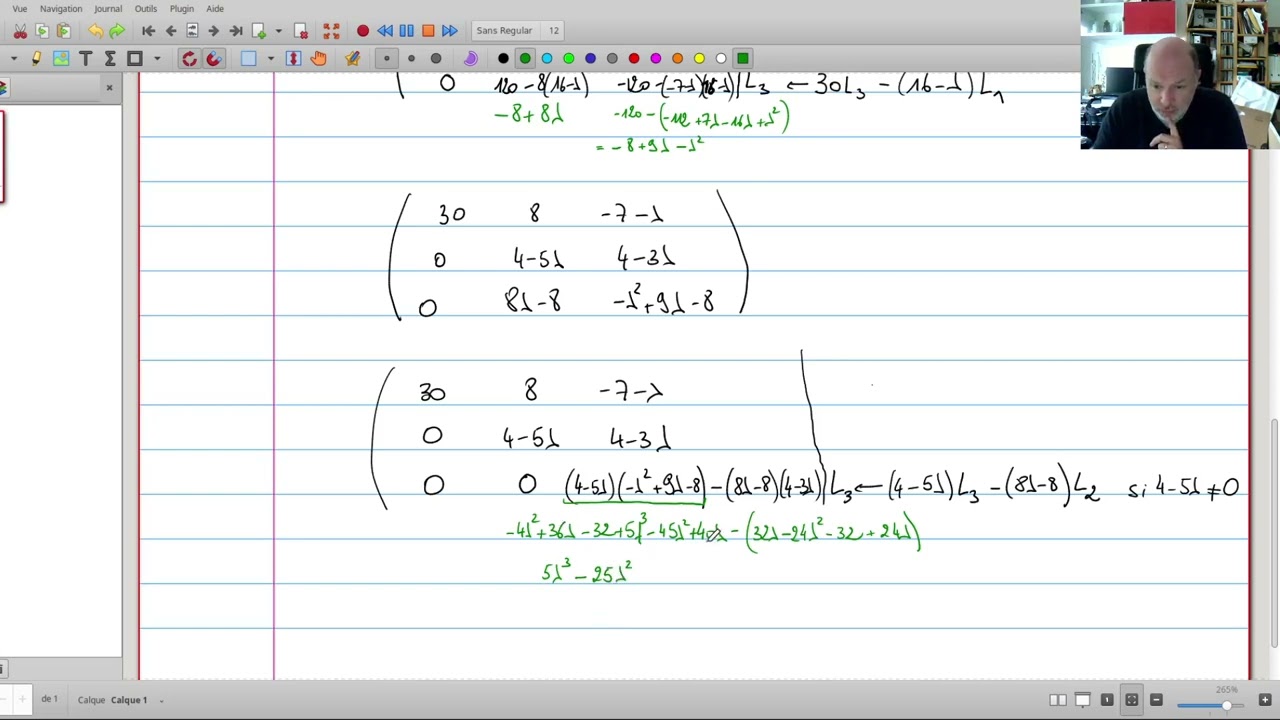 Vue Navigation Journal Outils Plugin Aide
Sans Regular 12
0 120-8(16-λ) -120-(-7-λ)(16-λ) L₃ ← 30L₃ - (16-λ)L₁
-8+8λ -120-(-112+7λ-16λ+λ²)
= -8+9λ-λ²
30 8 -7-λ
0 4-5λ 4-3λ
0 8λ-8 -λ²+9λ-8
30 8 -7-λ
0 4-5λ 4-3λ
0 0 (4-5λ)(-λ²+9λ-8)-(8λ-8)(4-3λ) L₃ ← (4-5λ)L₃ - (8λ-8)L₂ si 4-5λ≠0
-4λ²+36λ-32+5λ³-45λ²+40λ-(32λ-24λ²-32+24λ)
5λ³-25λ²
de 1 Calque Calque 1 265%